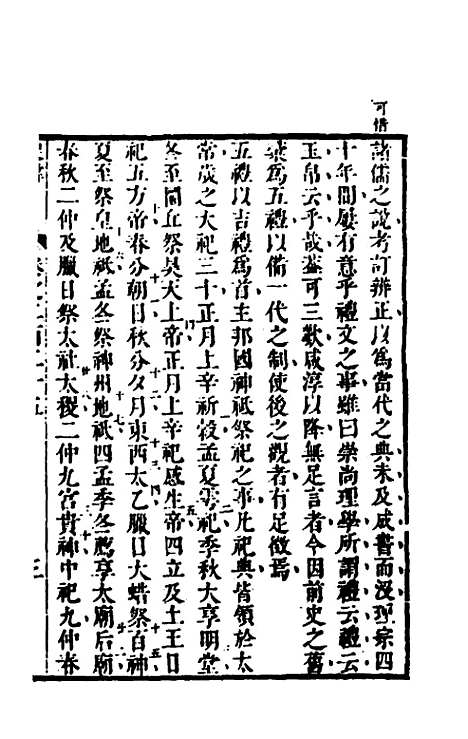 可惜
諸儒之說考訂辨正以爲當代之典未及成書而沒理宗四
十年間屢有意乎禮文之事雖曰崇尚理學所謂禮云禮云
玉帛云乎哉蓋可三歎咸淳以降無足言者今因前史之舊
彙爲五禮以備一代之制使後之觀者有足徵焉
五禮以吉禮爲首主邦國神祇祭祀之事凡祀典皆領於太
常歲之大祀三十正月上辛祈穀孟夏雩祀季秋大享明堂
冬至圜丘祭昊天上帝正月上辛祀感生帝四立及土王日
祀五方帝春分朝日秋分夕月東西太乙臘日大蜡祭百神
夏至祭皇地祇孟冬祭神州地祇四孟季冬薦享太廟后廟
春秋二仲及臘日祭太社太稷二仲九宮貴神中祀九仲春
三